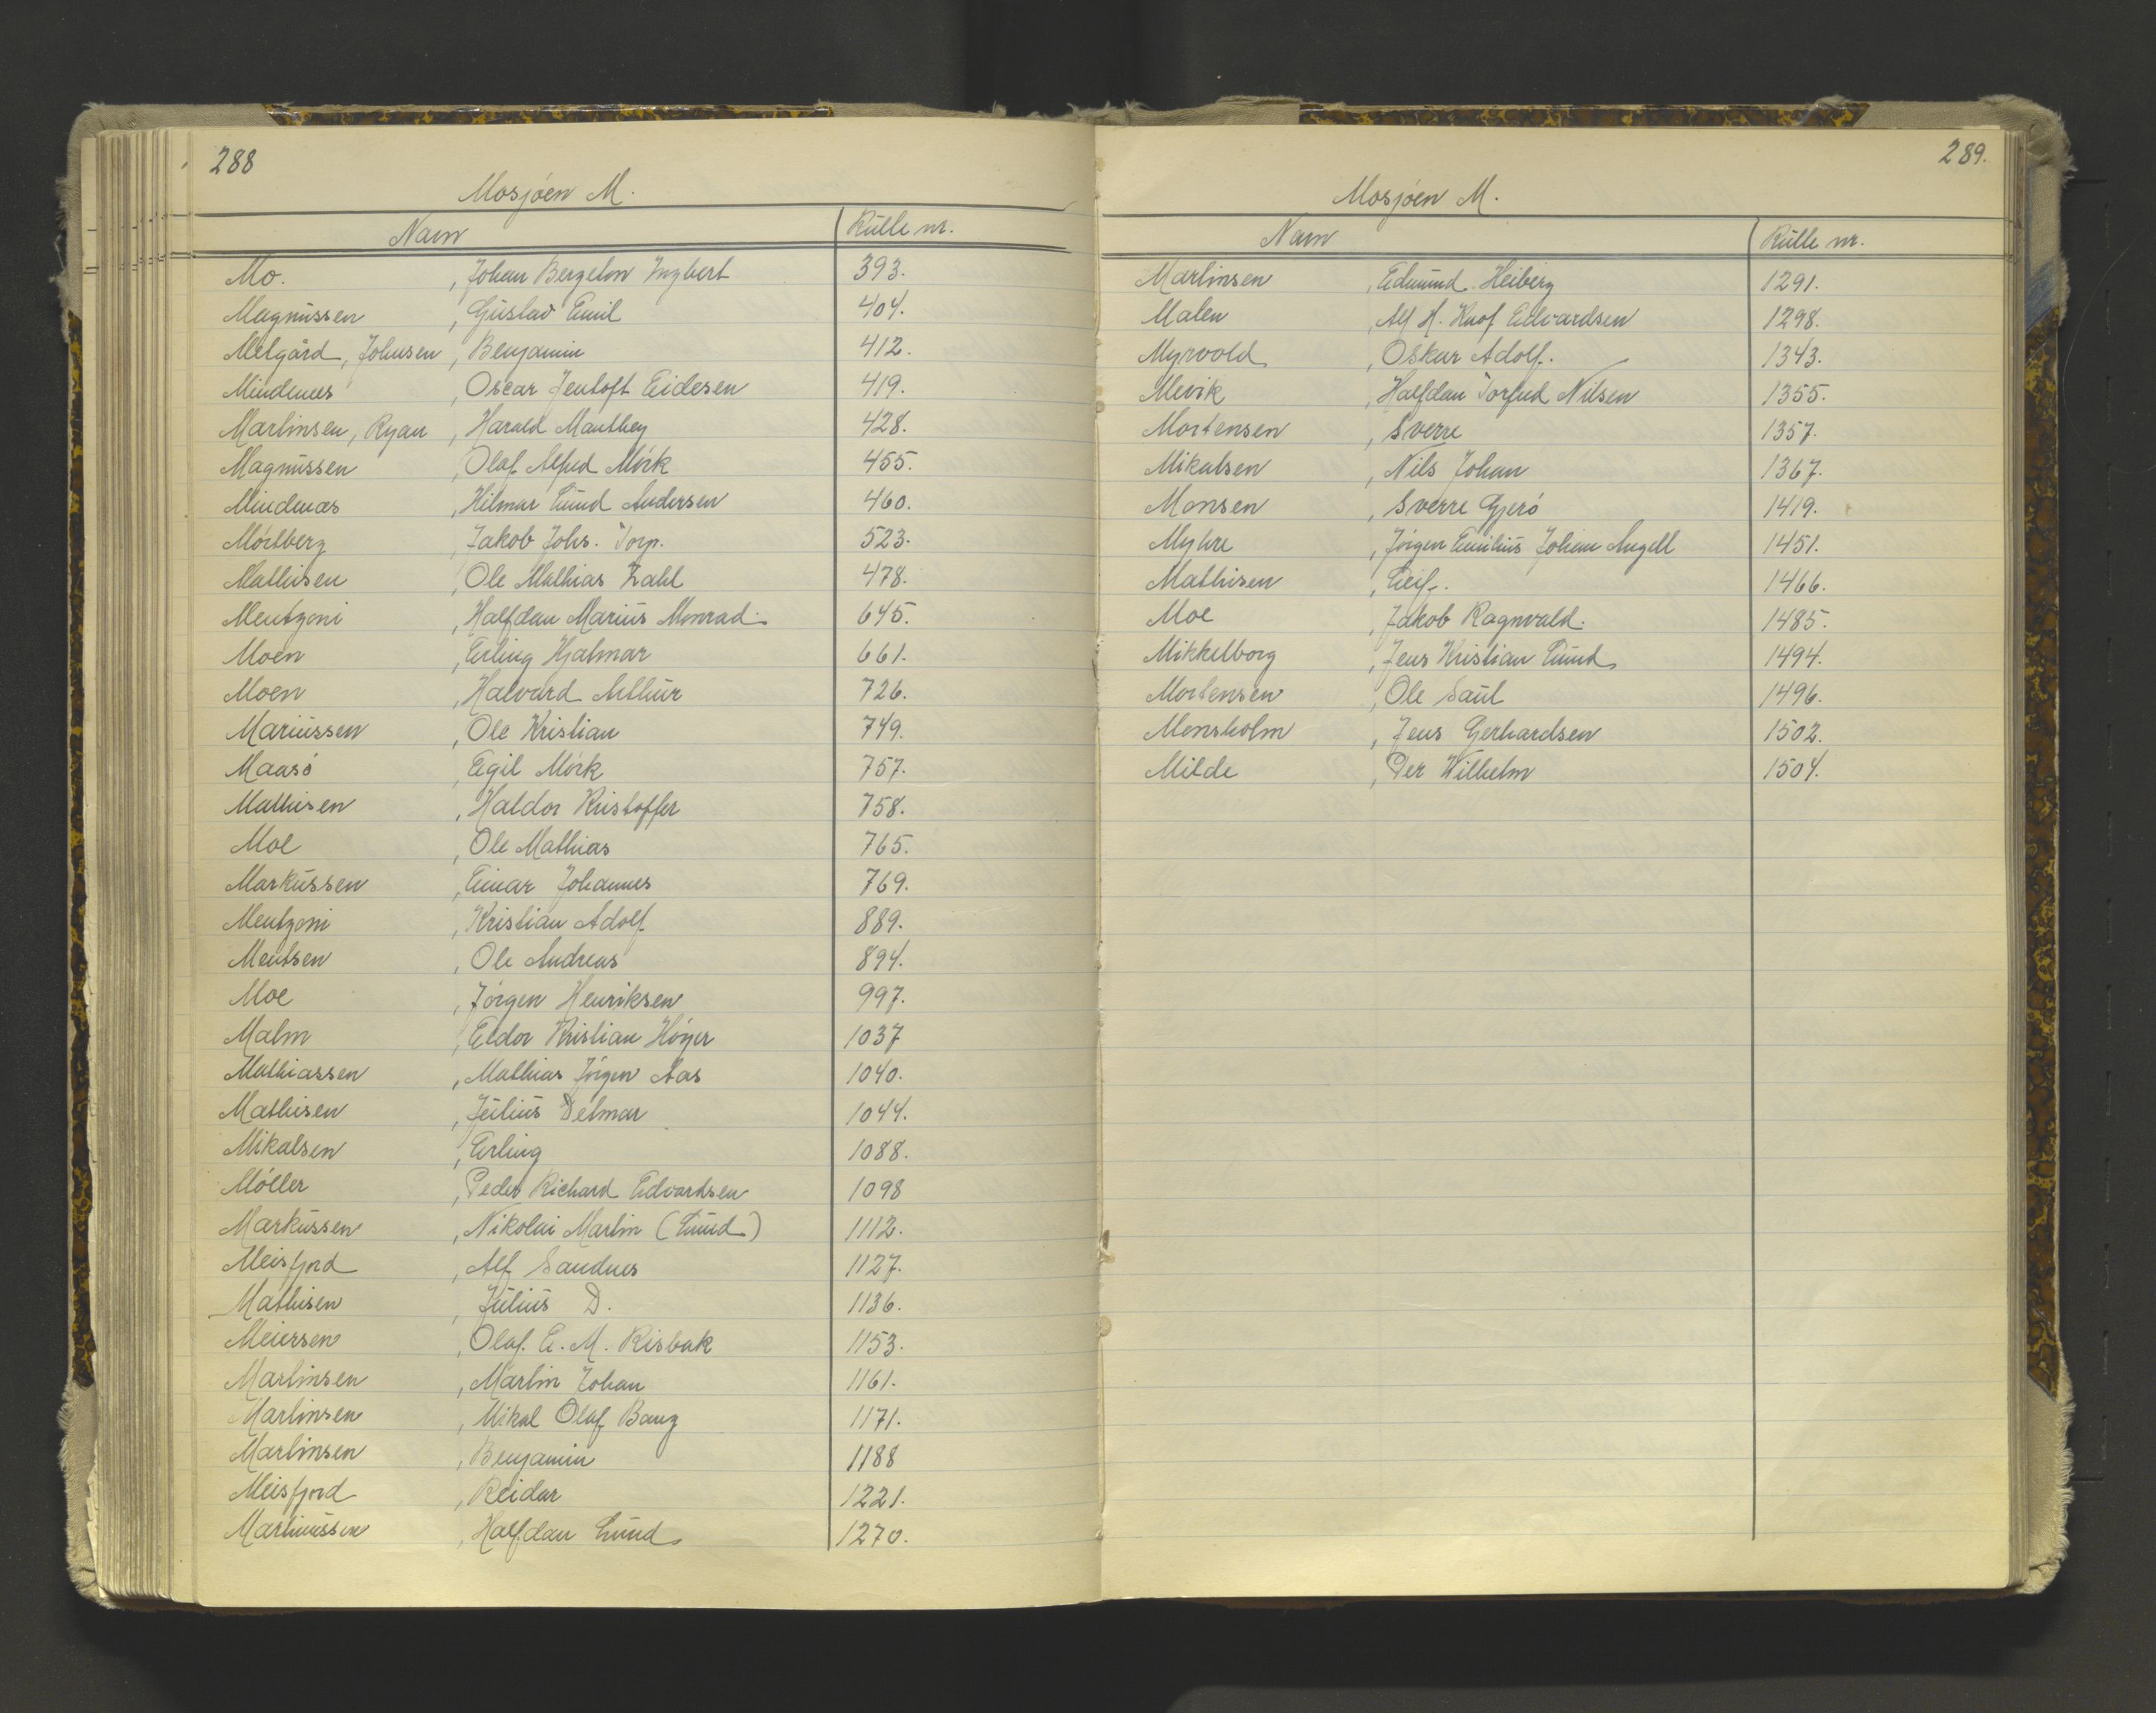 288
Mosjöen M.
Navn Rulle nr.
Mo. , Johan Bergeton Ingbert 393.
Magnussen , Gustav Emil 404.
Melgård, Johnsen , Benjamin 412.
Mindenes , Oscar Jentoft Eidesen 419.
Martinsen, Ryan , Harald Manthey 428.
Magnussen , Olaf Alfred Mörk 455.
Mindenæs , Hilmar Lund Andersen 460.
Mörtberg , Jakob Johs. Torp. 523.
Mathisen , Ole Mathias Zahl 478.
Mentzoni , Halfdan Marius Monrad. 645.
Moen , Erling Hjalmar 661.
Moen , Halvard Arthur 726.
Mariussen , Ole Kristian 749.
Maasö , Egil Mörk 757.
Mathisen , Haldor Kristoffer 758.
Moe , Ole Mathias 765.
Markussen , Einar Johannes 769.
Mentzoni , Kristian Adolf 889.
Mentsen , Ole Andreas 894.
Moe , Jörgen Henriksen 997.
Malm , Eldor Kristian Höyer 1037
Mathiassen , Mathias Jörgen Aas 1040.
Mathisen , Julius Delmar 1044.
Mikalsen , Erling 1088.
Möller , Peder Richard Edvardsen 1098
Markussen , Nikolai Martin (Lund) 1112.
Meisfjord , Alf Sandnes 1127.
Mathisen , Julius D. 1136.
Meiersen , Olaf. E. M. Risbak 1153.
Martinsen , Martin Johan 1161.
Martinsen , Mikal Olaf Bang 1171.
Martinsen , Benjamin 1188
Meisfjord , Reidar 1221.
Martinussen , Halfdan Lund 1270.
289.
Mosjöen M.
Navn Rulle nr.
Martinsen , Edmund Heiberg 1291.
Malen , Alf H. Knof Edvardsen 1298.
Myrvold , Oskar Adolf. 1343.
Mevik , Halfdan Torfred Nilsen 1355.
Mortensen , Sverre 1357.
Mikalsen , Nils Johan 1367.
Monsen , Sverre Gjerö 1419.
Myhre , Jörgen Emilius Johan Angell 1451.
Mathisen , Leif. 1466.
Moe , Jakob Ragnvald. 1485.
Mikkelborg , Jens Kristian Lund 1494.
Mortensen , Ole Saul 1496.
Monsholm , Jens Gerhardsen 1502.
Milde , Per Wilhelm 1504.